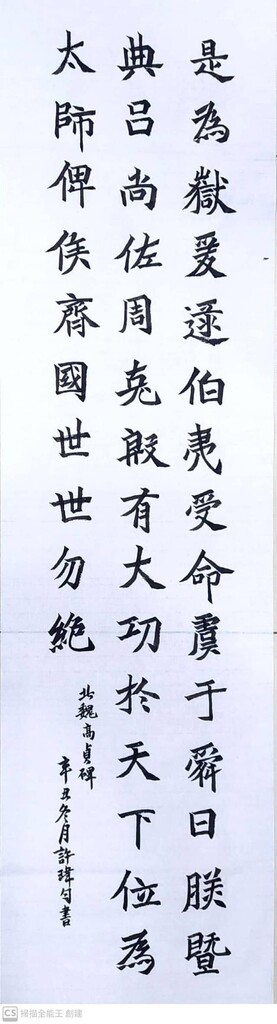 是為嶽爰逮伯夷受命虞于舜曰朕暨
典呂尚佐周克殷有大功於天下位為
太師俾侯齊國世世勿絕
北魏高貞碑
辛丑冬月許瑋勻書
CS 掃描全能王 創建